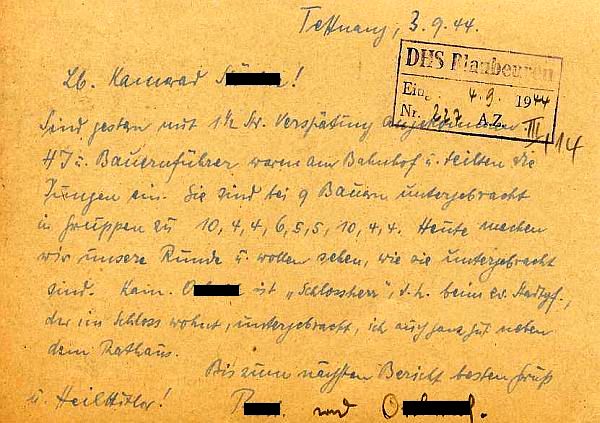 Tettnang, 3.9.44.
DHS Blaubeuren
Eing. 4.9. 1944
Nr. 227 A.Z. III/14
Lb. Kamerad S
Sind gestern mit 1½ St. Verspätung angekommen
HJ u. Bauernführer waren am Bahnhof u. teilten die
Jungen ein. Sie sind bei 9 Bauern untergebracht
in Gruppen zu 10, 4, 4, 6, 5, 5, 10, 4, 4. Heute machen
wir unsere Runde u. wollen sehen, wie sie untergebracht
sind. Kam. O ist „Schlossherr", d.h. beim ev. Stadtpf.,
der im Schloss wohnt, untergebracht, ich auch ganz gut neben
dem Rathaus.
Bis zum nächsten Bericht besten Gruß
u. Heil Hitler! und O